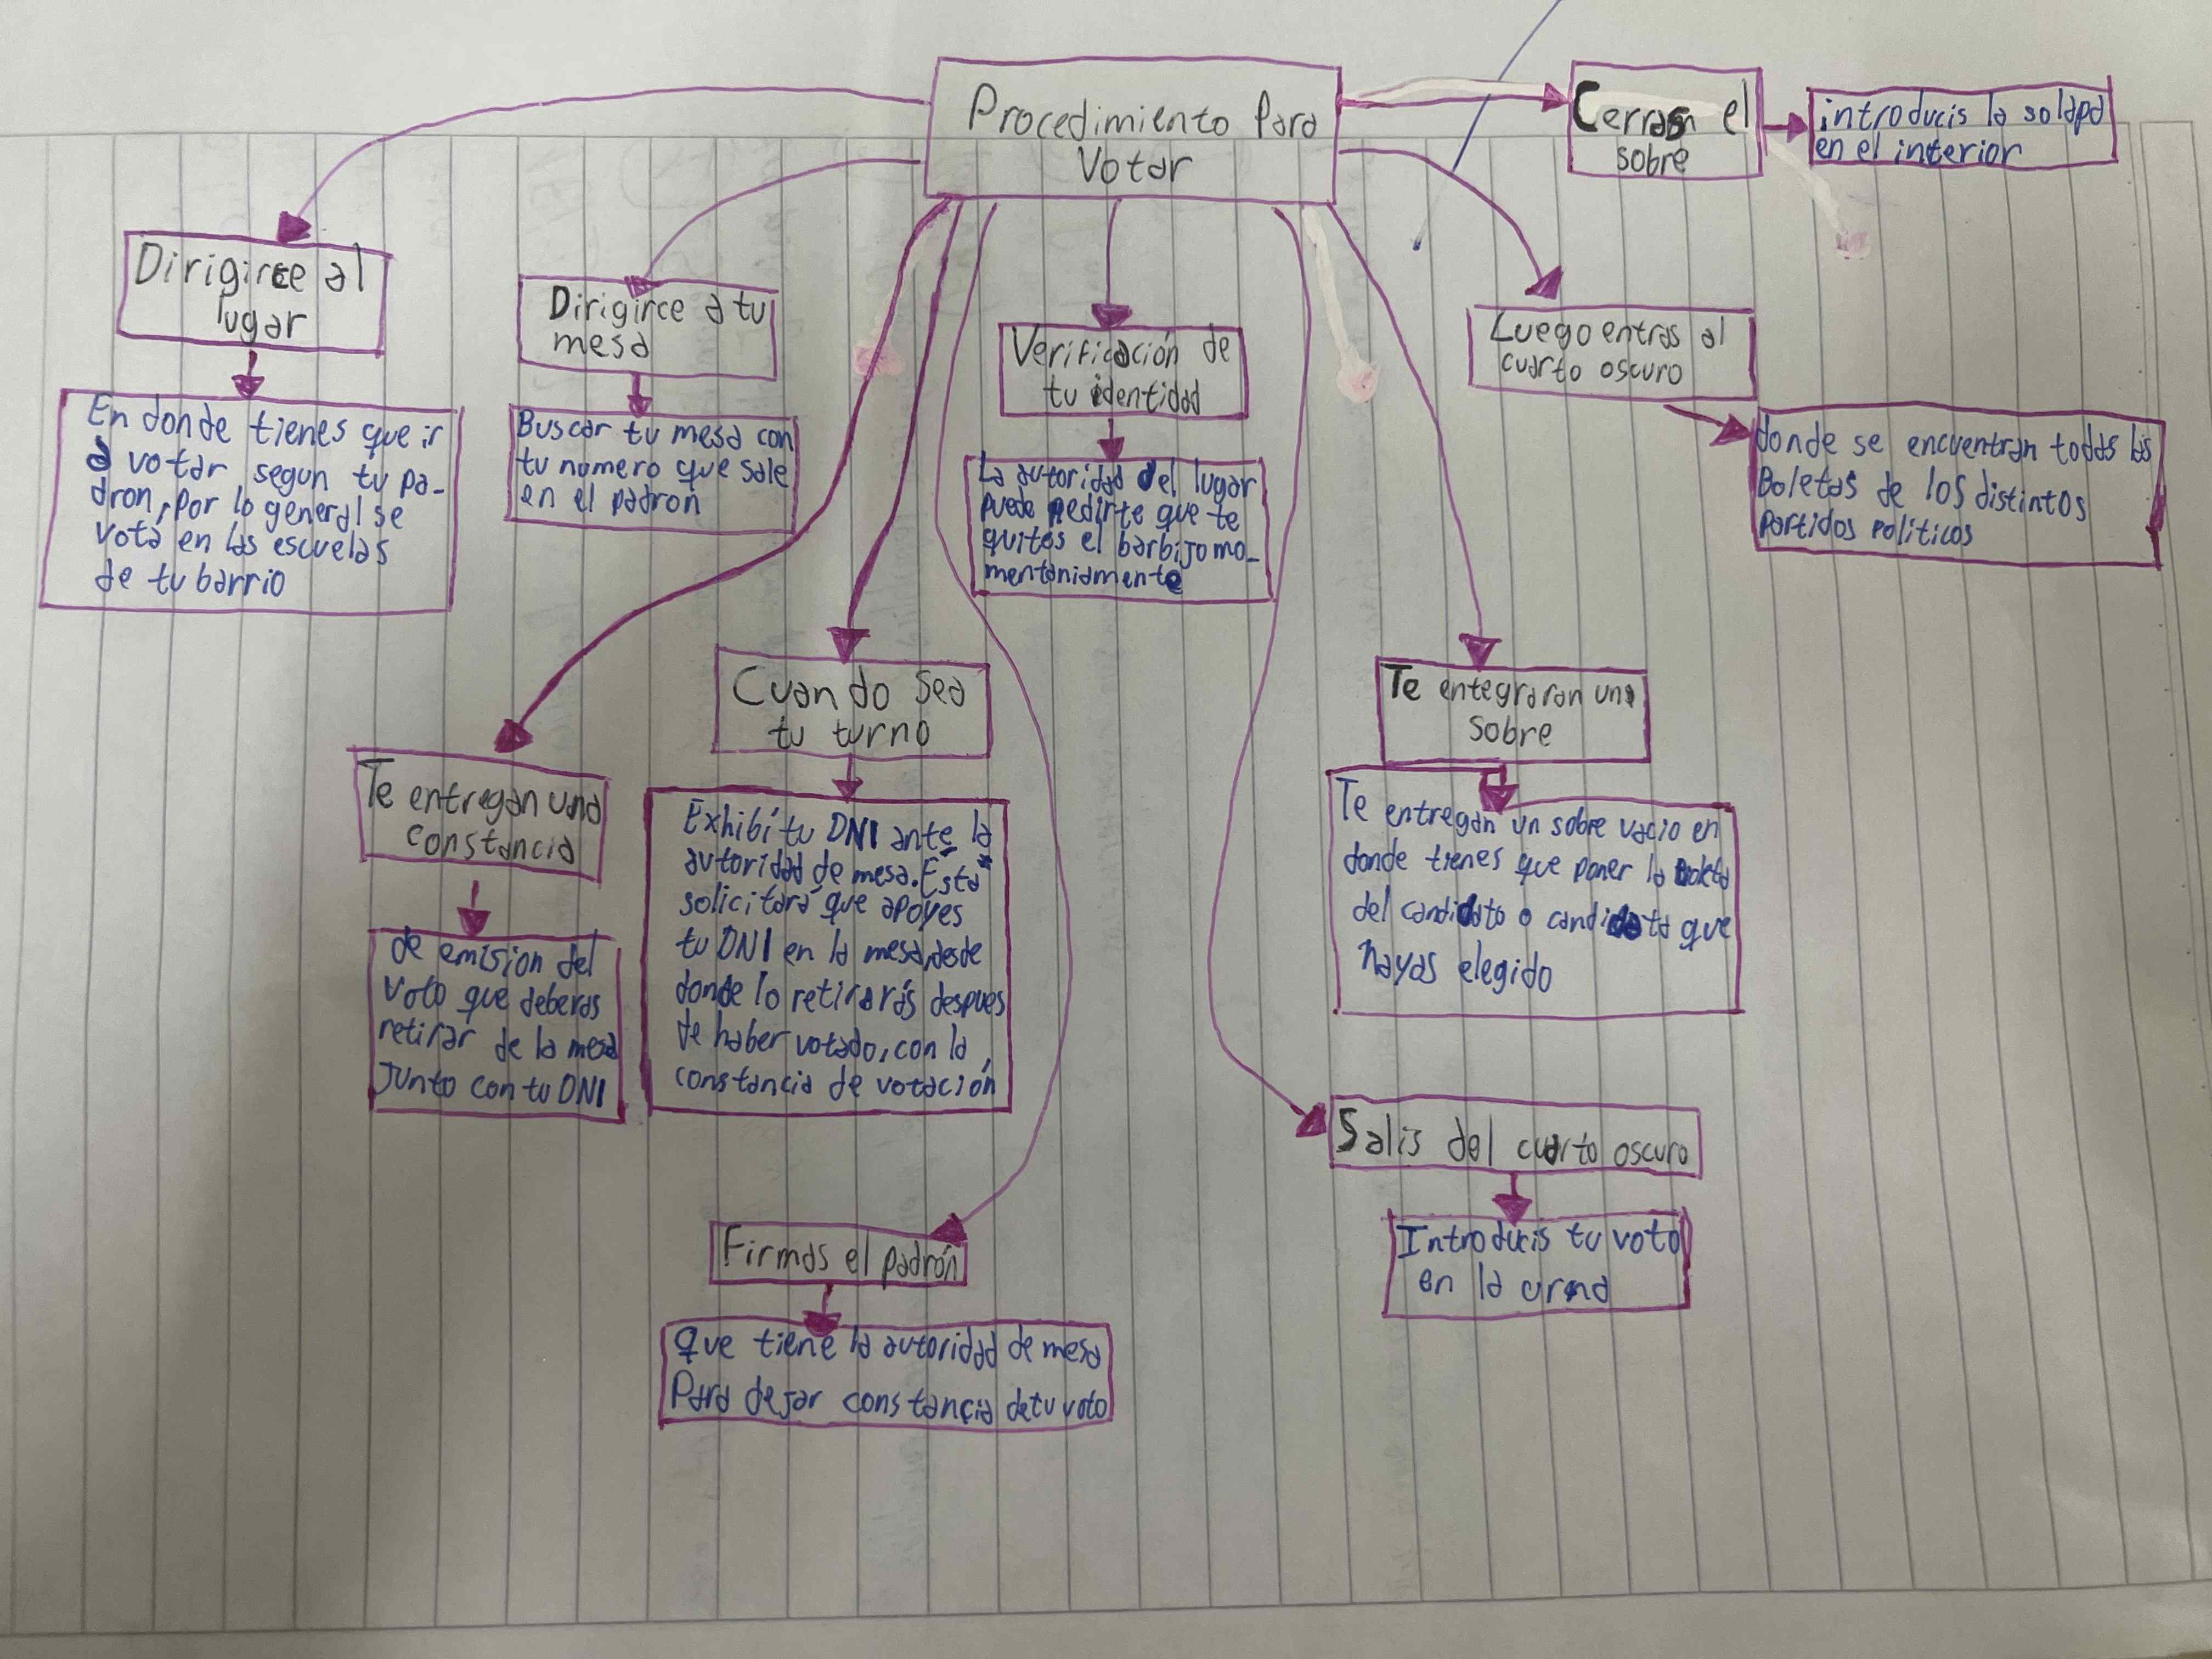 Procedimiento Para
Votar
Cerras el
sobre
introducis la solapa
en el interior
Dirigirce al
lugar
En donde tienes que ir
a votar segun tu pa-
dron, por lo general se
vota en las escuelas
de tu barrio
Dirigirce a tu
mesa
Buscar tu mesa con
tu numero que sale
en el padron
Verificación de
tu identidad
La autoridad del lugar
puede pedirte que te
quites el barbijo mo-
mentaniamente
Luego entras al
cuarto oscuro
donde se encuentran todas las
Boletas de los distintos
partidos politicos
Te entregan una
constancia
de emision del
voto que deberas
retirar de la mesa
Junto con tu DNI
Cuando sea
tu turno
Exhibí tu DNI ante la
autoridad de mesa. Esta
solicitará que apoyes
tu DNI en la mesa, desde
donde lo retirarás despues
de haber votado, con la
constancia de votación
Te entegraran un
sobre
Te entregan un sobre vacio en
donde tienes que poner la boleta
del candidato o candidata que
hayas elegido
Salis del cuarto oscuro
Introducis tu voto
en la urna
Firmas el padrón
que tiene la autoridad de mesa
Para dejar constancia de tu voto